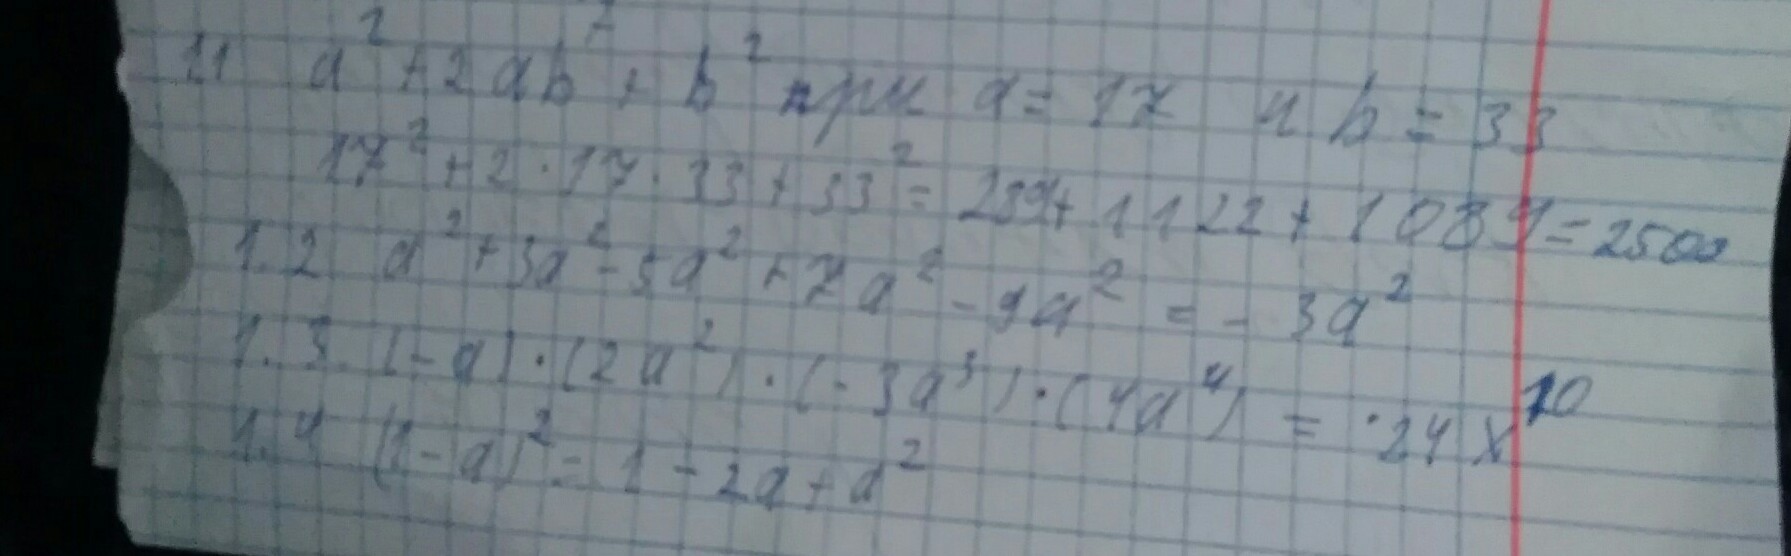 11 a² + 2ab + b² при a = 17 и b = 33
17² + 2 · 17 · 33 + 33² = 289 + 1122 + 1089 = 2500
1.2 a² + 3a² - 5a² + 7a² - 9a² = - 3a²
1.3. (-a) · (2a²) · (-3a³) · (4a⁴) = 24x¹⁰
1.4 (1-a)² = 1 - 2a + a²